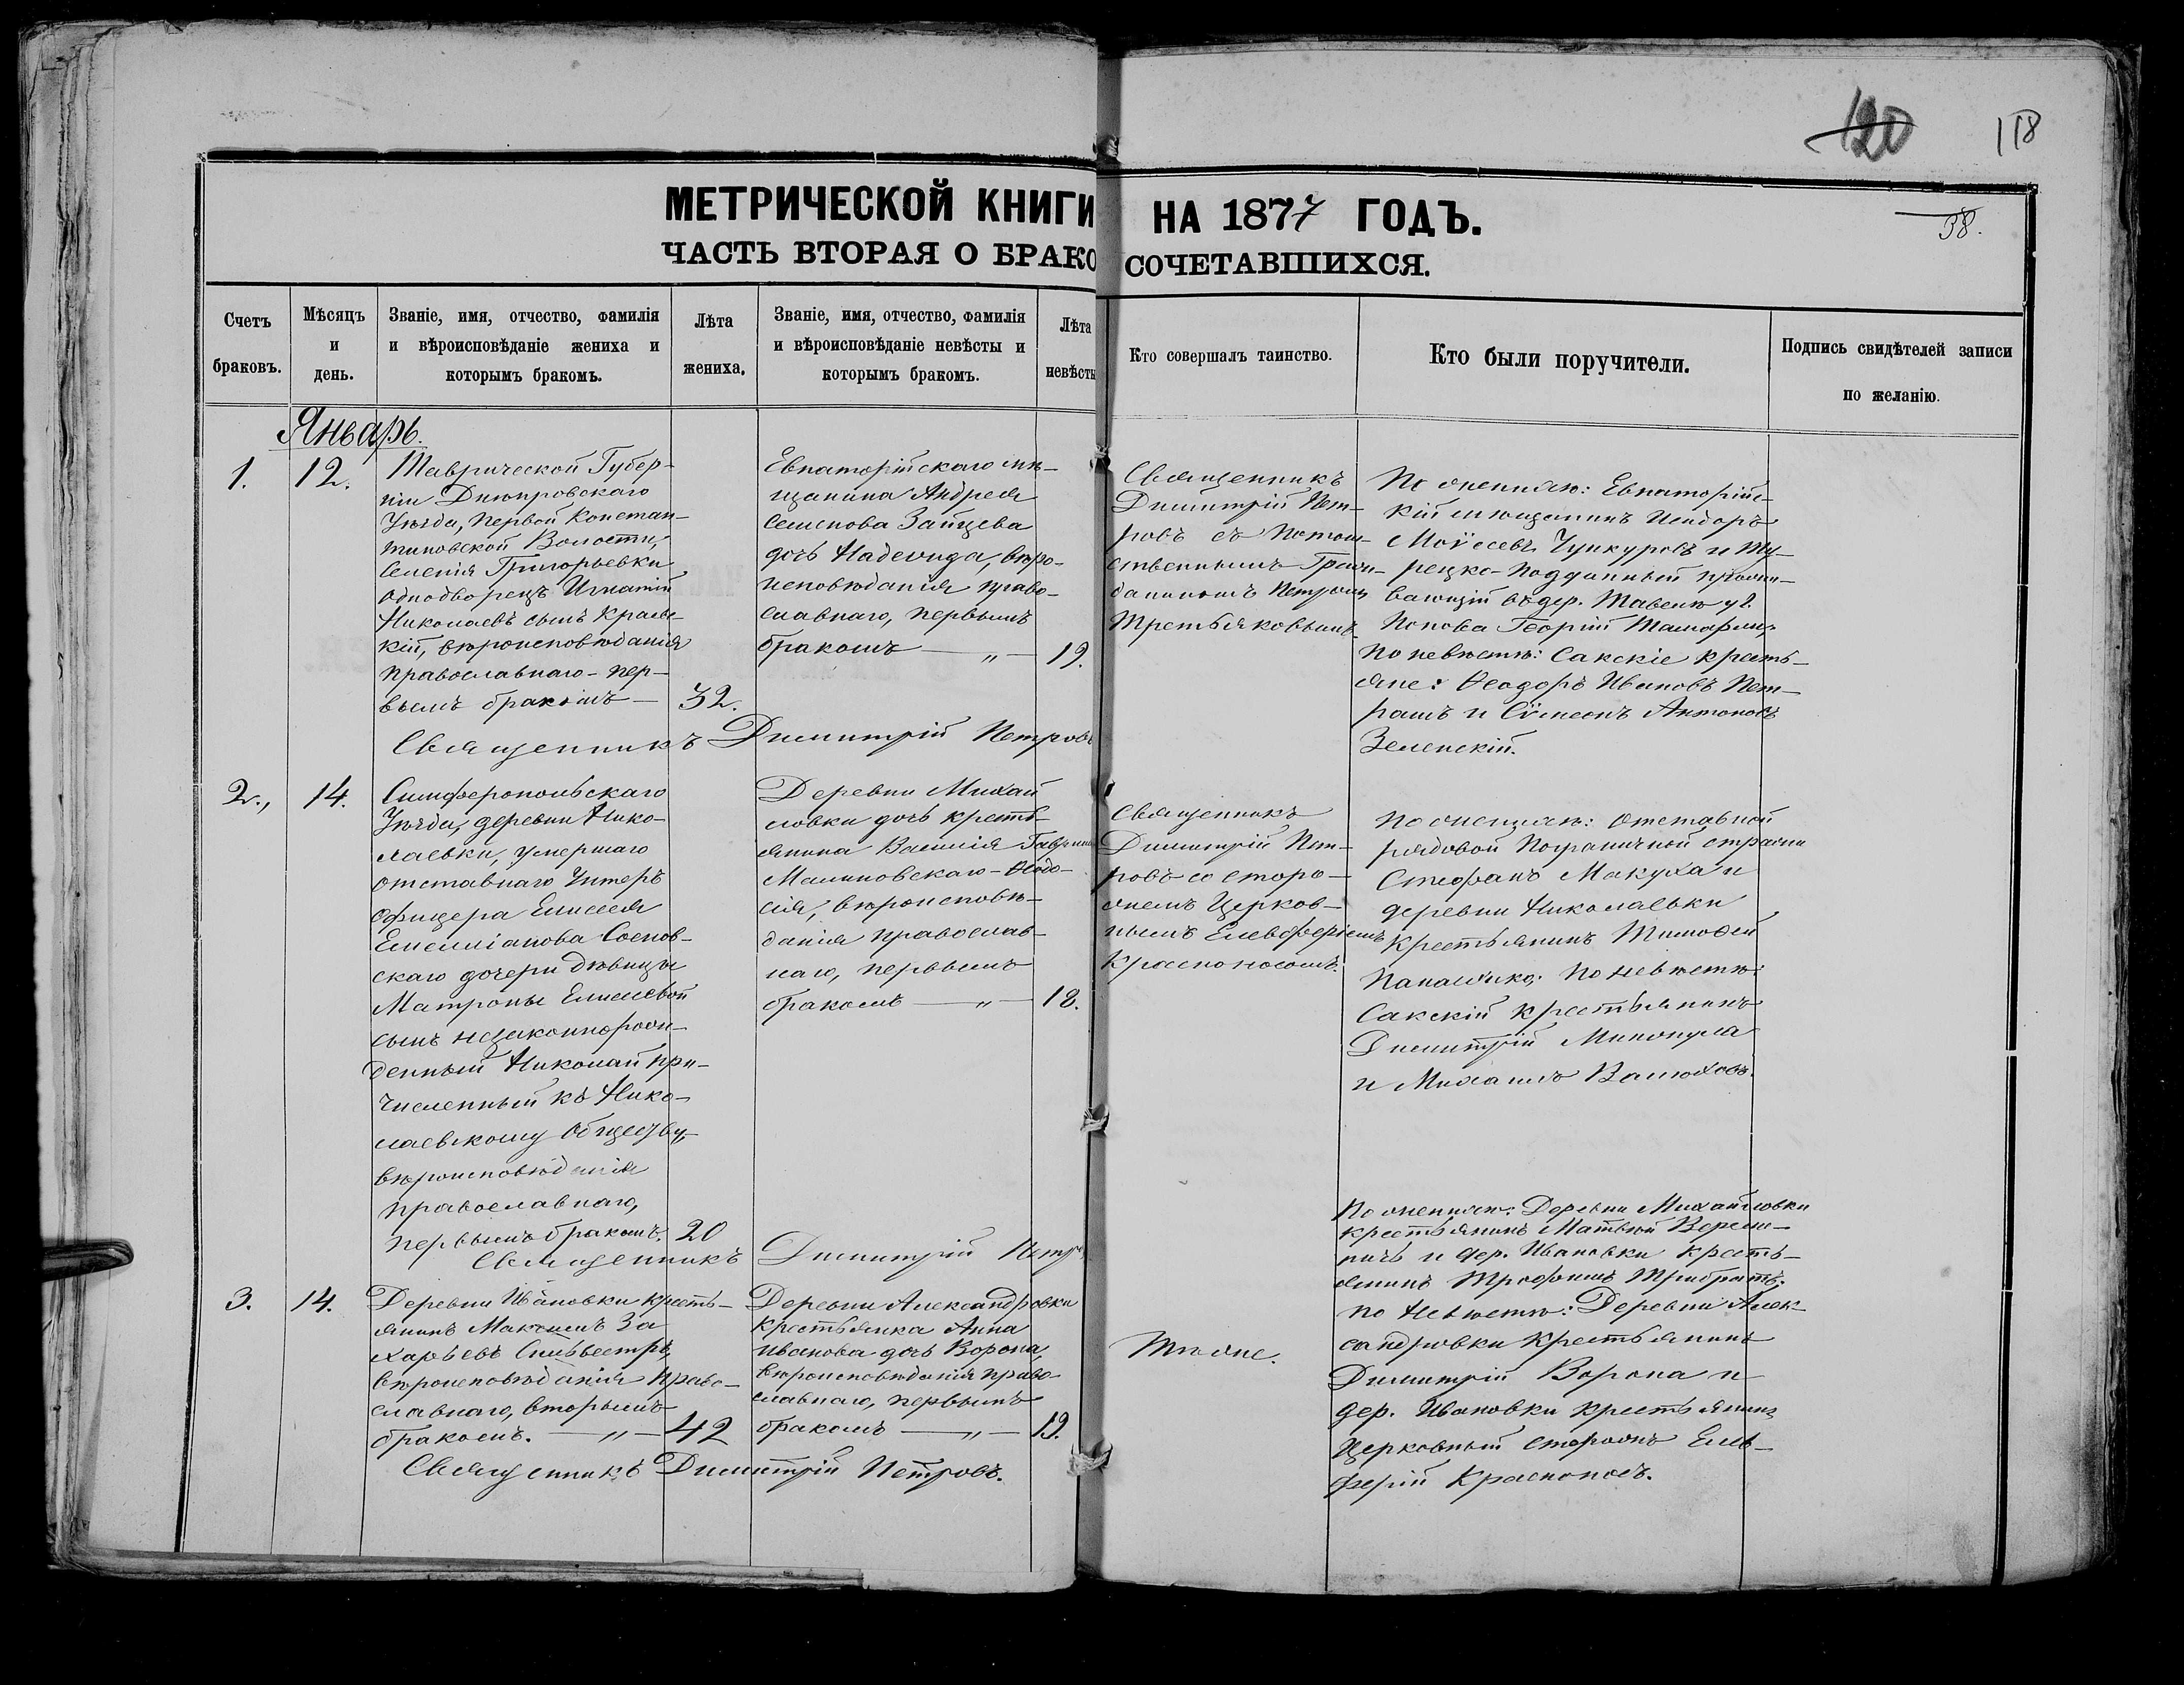 120 118
38.
МЕТРИЧЕСКОЙ КНИГИ НА 1877 ГОДЪ.
ЧАСТЬ ВТОРАЯ О БРАКОСОЧЕТАВШИХСЯ.
Счетъ
браковъ.
Мѣсяцъ
и
день.
Званіе, имя, отчество, фамилія
и вѣроисповѣданіе жениха и
которымъ бракомъ.
Лѣта
жениха.
Званіе, имя, отчество, фамилія
и вѣроисповѣданіе невѣсты и
которымъ бракомъ.
Лѣта
невѣсты
Кто совершалъ таинство.
Кто были поручители.
Подпись свидѣтелей записи
по желанію.
Январь.
1.
12.
Таврической Губер-
ніи Днѣпровскаго
Уѣзда, первой Констан-
тиновской Волости,
Селенія Григорьевки
однодворецъ Игнатій
Николаевъ сынъ Краев-
кій, вѣроисповѣданія
православнаго - пер-
вымъ бракомъ —
32.
Евпаторійскаго мѣ-
щанина Андрея
Семенова Зайцева
дочь Надежда, вѣро-
исповѣданія право-
славнаго, первымъ
бракомъ — „ —
19.
Священникъ
Димитрій Пет-
ровъ съ Потом-
ственнымъ Граж-
даниномъ Петромъ
Третьяковымъ.
По женихѣ: Евпаторійс-
кій мѣщанинъ Исидоръ
Моѵсеевъ Чункуровъ и Ту-
рецко-Подданный прожи-
вающій въ дер. Тавелѣ у г.
Попова Георгій
По невѣстѣ: Сакскіе кресть-
яне: Ѳеодоръ Ивановъ Пет-
рашъ и Сѵмеонъ Антоновъ
Зеленскій.
Священникъ Димитрій Петровъ
2.,
14.
Симферопольскаго
Уѣзда, деревни Нико-
лаевки, умершаго
отставнаго Унтеръ
офицера Елисея
Емелліанова Соснов-
скаго дочери дѣвицы
Матроны Елисеевой
сынъ незаконнорож-
денный Николай при-
численный къ Нико-
лаевскому Обществу,
вѣроисповѣданія
православнаго,
первымъ бракомъ.
20
Деревни Михай
ловки дочь кресть-
янина Василія Гаврилова
Малиновскаго - Ѳеодо-
сія, вѣроисповѣ-
данія православ-
наго, первымъ
бракомъ — „ —
18.
Священникъ
Димитрій Пет-
ровъ со сторо-
жемъ Церков-
нымъ Елевферіемъ
Красноносомъ.
По женихѣ: Отставной
рядовой Пограничной стражи
Стефанъ Макуха и
деревни Николаевки
крестьянинъ Тимоѳей
Панасенко; По невѣстѣ:
Сакскій крестьянинъ
Димитрій Минопула
и Михаилъ Валюховъ.
Священникъ Димитрій Петр
3.
14.
Деревни Ивановки кресть-
янинъ Максимъ За
харьевъ Сильвестръ,
вѣроисповѣданія право-
славнаго, вторымъ
бракомъ. — „ —
42
Деревни Александровки
крестьянка Анна
Иванова дочь Ворона,
вѣроисповѣданія право-
славнаго, первымъ
бракомъ — „ —
19.
Тѣ же.
По женихѣ: Деревни Михайловки
крестьянинъ Матвѣй Вереми-
ичъ и дер. Ивановки кресть-
янинъ Трофимъ Трибратъ;
по Невѣстѣ: Деревни Алек-
сандровки крестьянинъ
Димитрій Ворона и
дер. Ивановки крестьянинъ
Церковный сторожъ Елев-
ферій Красноносъ.
Священникъ Димитрій Петровъ.